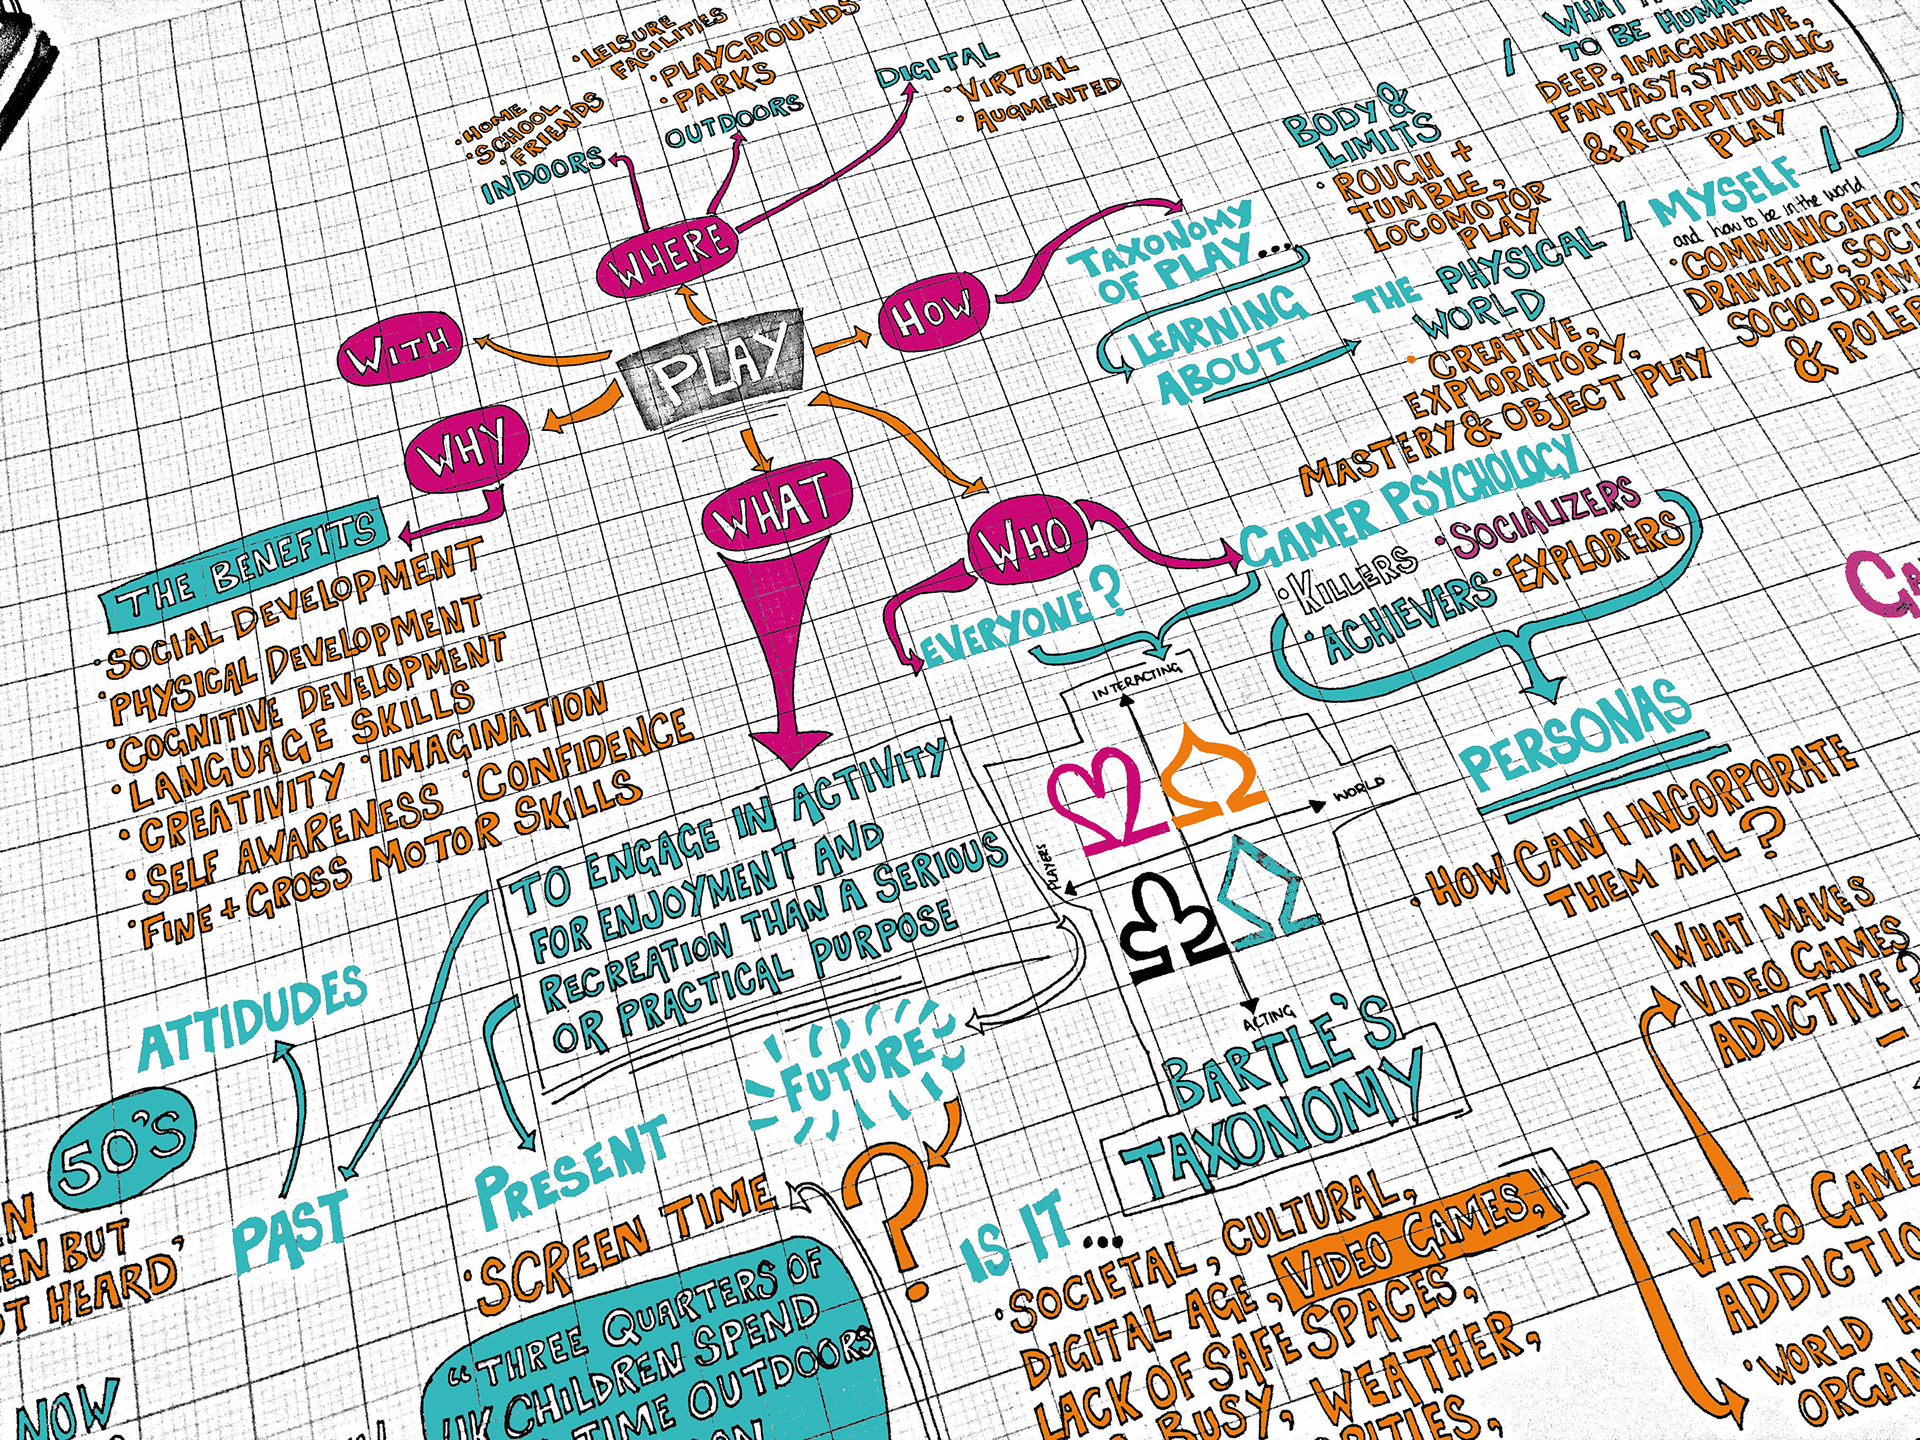 LEISURE
FACILITIES
PLAYGROUNDS
PARKS
OUTDOORS
HOME
SCHOOL
FRIENDS
INDOORS
DIGITAL
VIRTUAL
AUGMENTED
WHERE
WITH
PLAY
HOW
WHY
WHAT
WHO
TAXONOMY
OF PLAY...
LEARNING
ABOUT
BODY &
LIMITS
ROUGH +
TUMBLE,
LOCOMOTOR
PLAY
TO BE HUMAN
DEEP, IMAGINATIVE,
FANTASY, SYMBOLIC
& RECAPITULATIVE
PLAY
THE PHYSICAL
WORLD
CREATIVE,
EXPLORATORY,
MASTERY & OBJECT PLAY
MYSELF
and how to be in the world
COMMUNICATION
DRAMATIC,
SOCIO-DRAMA
&
THE BENEFITS
SOCIAL DEVELOPMENT
PHYSICAL DEVELOPMENT
COGNITIVE DEVELOPMENT
LANGUAGE SKILLS
CREATIVITY · IMAGINATION
SELF AWARENESS · CONFIDENCE
FINE + GROSS MOTOR SKILLS
EVERYONE?
GAMER PSYCHOLOGY
KILLERS · SOCIALIZERS
ACHIEVERS · EXPLORERS
PERSONAS
HOW CAN I INCORPORATE
THEM ALL?
INTERACTING
WORLD
PLAYERS
ACTING
BARTLE'S
TAXONOMY
TO ENGAGE IN ACTIVITY
FOR ENJOYMENT AND
RECREATION THAN A SERIOUS
OR PRACTICAL PURPOSE
ATTIDUDES
50'S
PAST
EN BUT
HEARD'
NOW
PRESENT
SCREEN TIME
"THREE QUARTERS OF
UK CHILDREN SPEND
TIME OUTDOORS
FUTURE
?
IS IT...
SOCIETAL, CULTURAL,
DIGITAL AGE, VIDEO GAMES,
LACK OF SAFE SPACES,
BUSY, WEATHER,
WHAT MAKES
VIDEO GAMES
ADDICTIVE?
VIDEO GAME
ADDICTIO
WORLD HE
ORGAN